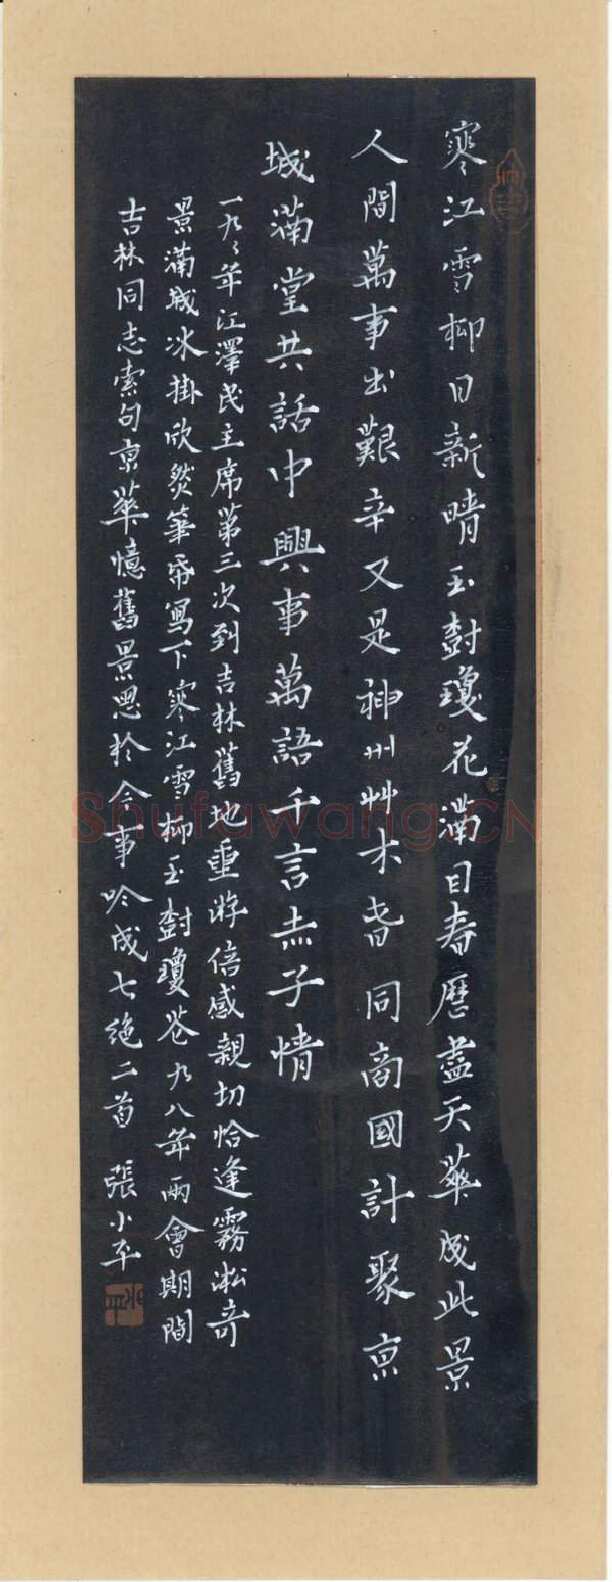 寒江雪柳日新晴玉樹瓊花滿目春歷盡天華成此景
人間萬事出艱辛又是神州艸木春同商國計聚京
城滿堂共話中興事萬語千言赤子情
一九九〻年江澤民主席第三次到吉林舊地重游倍感親切恰逢霧淞奇
景滿城冰掛欣然筆录寫下寒江雪柳玉樹瓊花九八年兩會期間
吉林同志索句京華憶舊景思於今事吟成七絕二首 張小平
Shufawang.CN